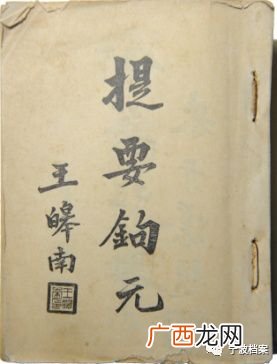 提要鉤元
王皞南
广西龙网
宁波档案